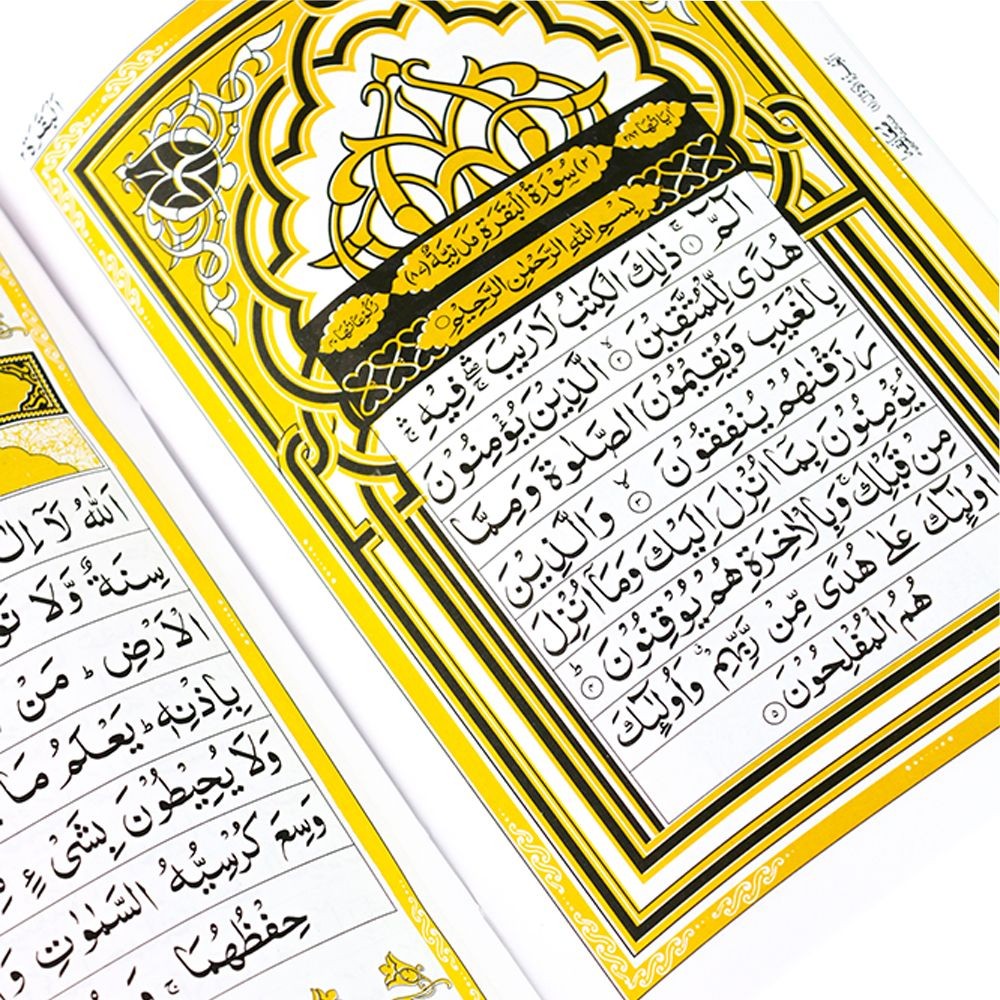 اَلْبَقَرَة
اٰيَاتُهَا ٢٨٦ (٢) سُوْرَةُ الْبَقَرَةِ مَدَنِيَّةٌ (٨٧) رُكُوْعَاتُهَا
بِسْمِ اللّٰهِ الرَّحْمٰنِ الرَّحِيْمِ ○
الٓمّٓ ۚ ١ ذٰلِكَ الْكِتٰبُ لَا رَيْبَ ۛۖۚ فِيْهِ ۛۚ
هُدًى لِّلْمُتَّقِيْنَ ۙ ٢ الَّذِيْنَ يُؤْمِنُوْنَ
بِالْغَيْبِ وَيُقِيْمُوْنَ الصَّلٰوةَ وَمِمَّا
رَزَقْنٰهُمْ يُنْفِقُوْنَ ۙ ٣ وَالَّذِيْنَ
يُؤْمِنُوْنَ بِمَاۤ اُنْزِلَ اِلَيْكَ وَمَاۤ اُنْزِلَ
مِنْ قَبْلِكَ ۚ وَبِالْاٰخِرَةِ هُمْ يُوْقِنُوْنَ ؕ ٤
اُولٰٓئِكَ عَلٰى هُدًى مِّنْ رَّبِّهِمْ ۗ وَاُولٰٓئِكَ
هُمُ الْمُفْلِحُوْنَ ٥
اَللّٰهُ لَاۤ اِلٰ
سِنَةٌ وَّلَا نَوْ
الْاَرْضِ ؕ مَنْ
بِاِذْنِهٖ ؕ يَعْلَمُ مَا
وَلَا يُحِيْطُوْنَ بِشَيْءٍ
وَسِعَ كُرْسِيُّهُ السَّمٰوٰتِ وَ
حِفْظُهُمَا ۚ وَ